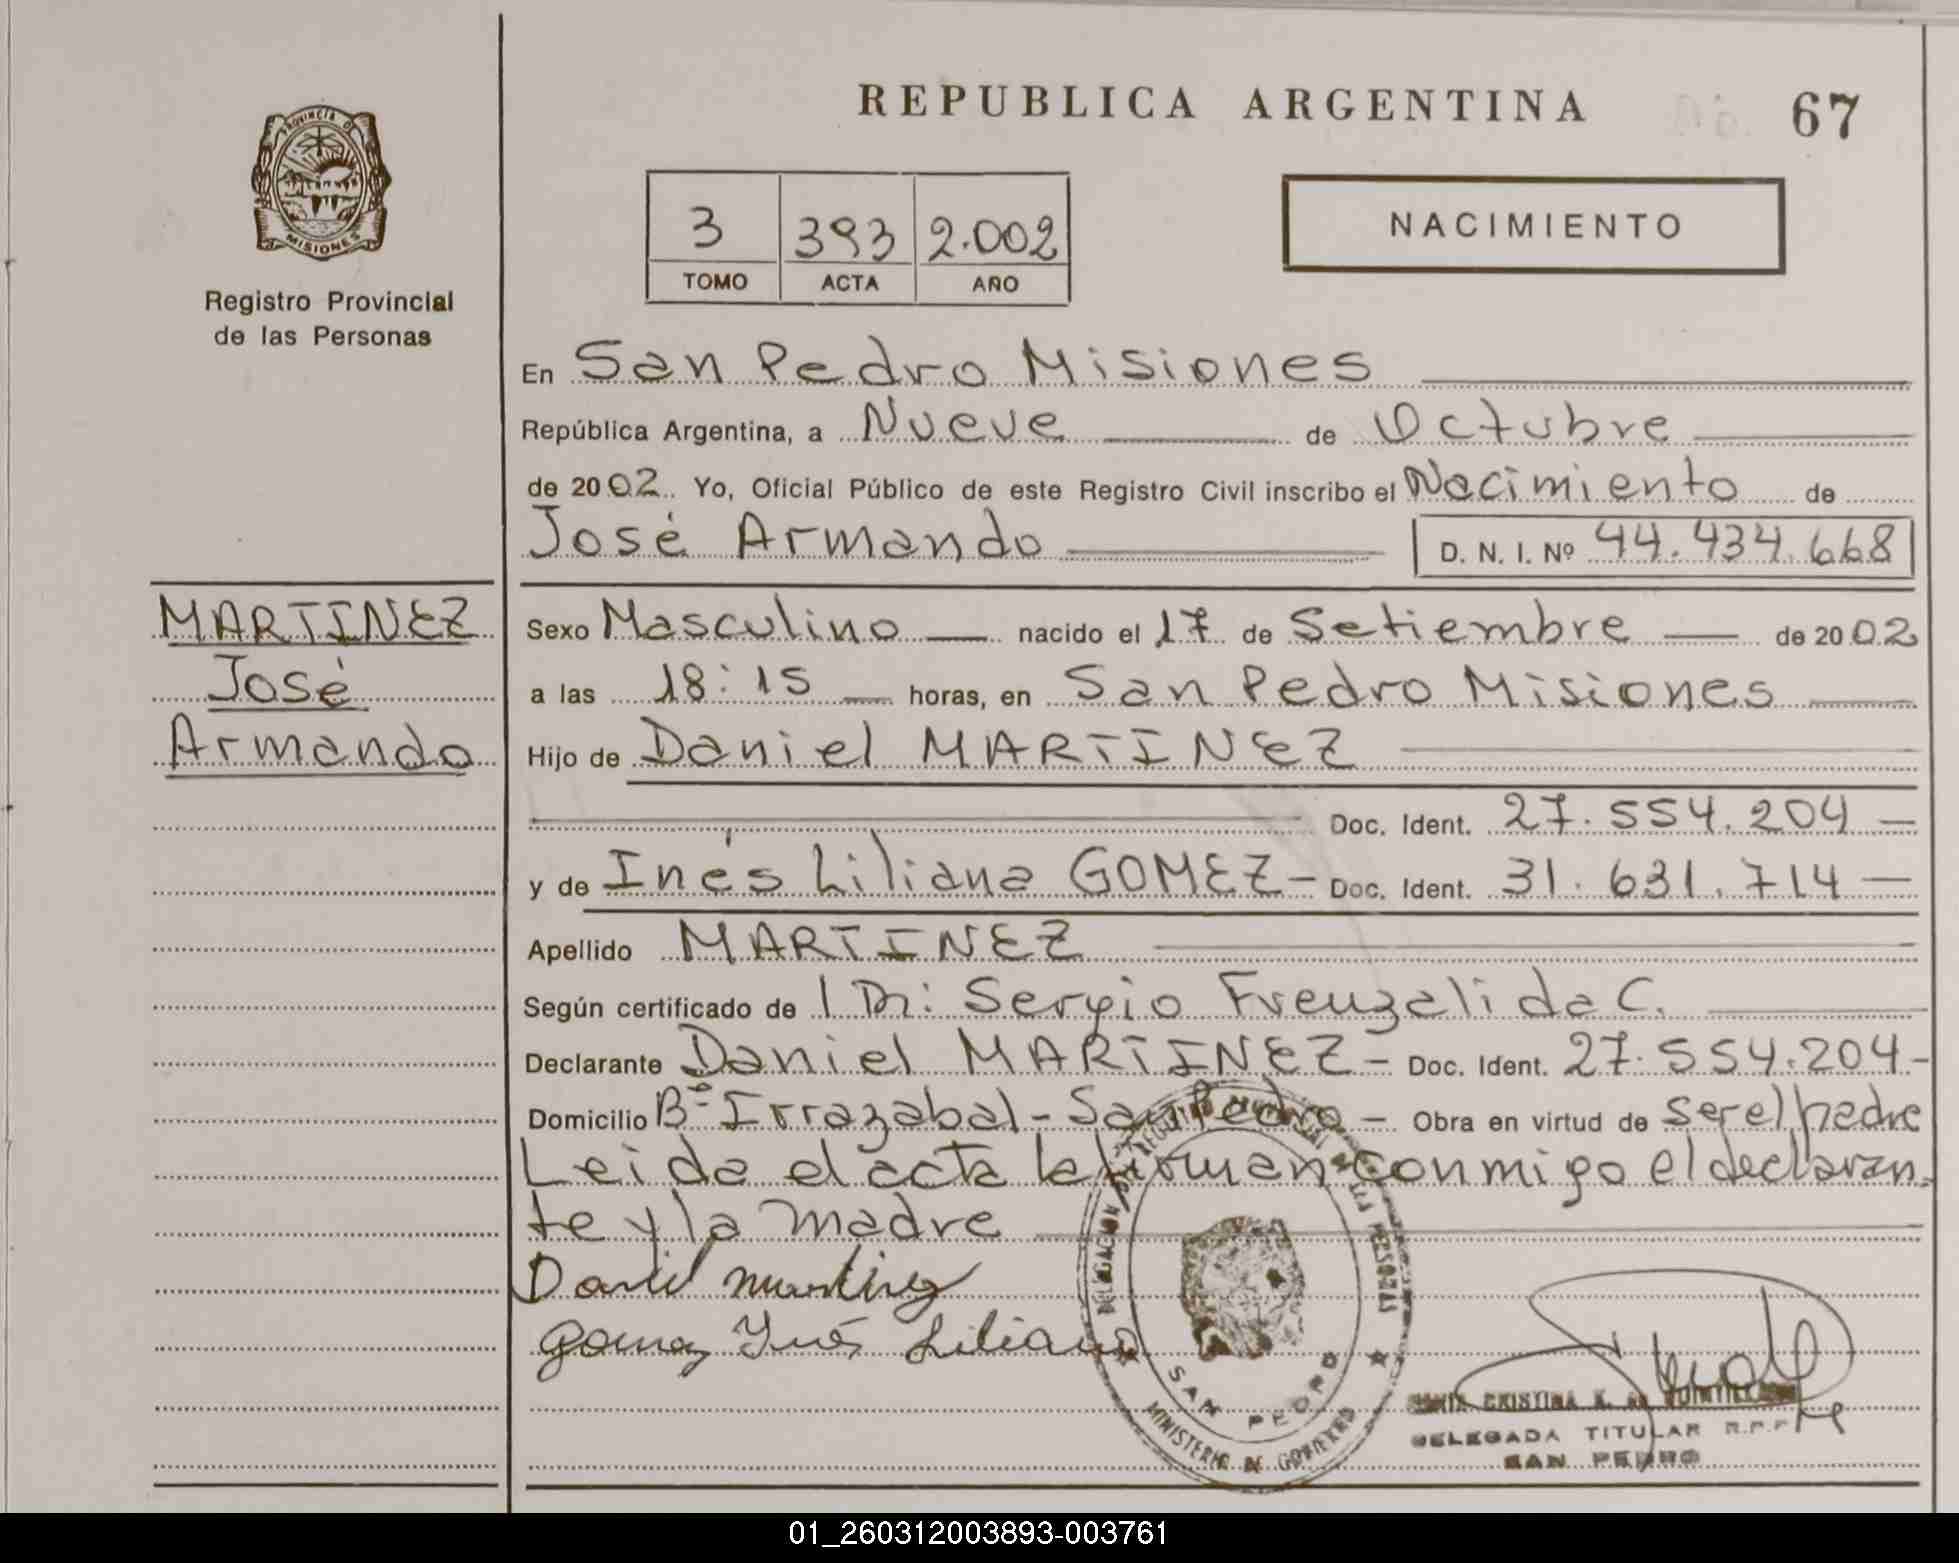 REPUBLICA ARGENTINA 67
PROVINCIA DE
MISIONES
Registro Provincial
de las Personas
3 393 2.002
TOMO ACTA AÑO
NACIMIENTO
En San Pedro Misiones
República Argentina, a Nueve de Octubre
de 2002. Yo, Oficial Público de este Registro Civil inscribo el Nacimiento de
José Armando D. N. I. Nº 44.434.668
MARTINEZ
José
Armando
Sexo Masculino nacido el 17 de Setiembre de 2002
a las 18:15 horas, en San Pedro Misiones
Hijo de Daniel MARTINEZ
Doc. Ident. 27.554.204
y de Inés Liliana GOMEZ - Doc. Ident. 31.631.714
Apellido MARTINEZ
Según certificado de Dr: Sergio C.
Declarante Daniel MARTINEZ - Doc. Ident. 27.554.204 -
Domicilio Bº Irrazabal - San Pedro - Obra en virtud de ser el padre
Leida el acta la firman conmigo el declaran-
te y la madre
Daniel Martinez
Gomez Inés Liliana
DELEGACION REGISTRO PROVINCIAL DE LAS PERSONAS
SAN PEDRO
MINISTERIO DE GOBIERNO
CRISTINA
DELEGADA TITULAR R.P.P.
SAN PEDRO
01_260312003893-003761